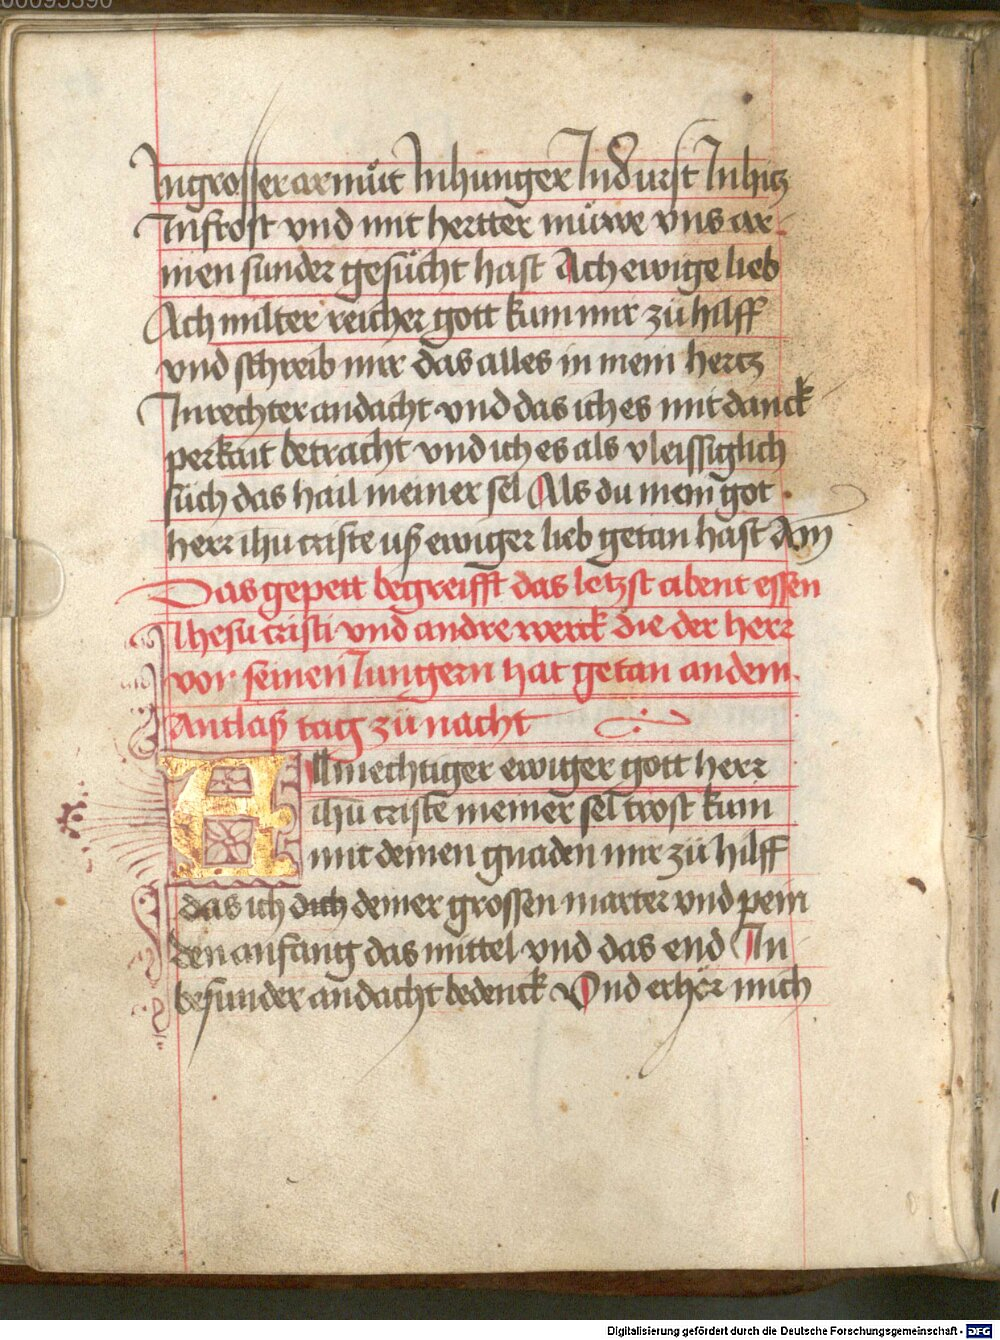 00095390
In grosser armůt In hunger In durst In hitz
In frost vnd mit hertter můwe vns ar-
men sunder gesůcht hast Ach ewige lieb
Ach milter reicher gott kum mir zů hilff
vnd schreib mir das alles in mein hertz
In rechter andacht vnd das ich es mit danck
perkait betracht vnd ich es als vleissiglich
sůch das hail meiner sel Als du mein got
herr ihu criste uß ewiger lieb getan hast Am
Das gepett begreifft das letzst abent essen
Ihesu cristi vnd andre werck die der herr
vor seinen Jungern hat getan an dem
Antlaß tag zů nacht
Allmechtiger ewiger gott herr
ihu criste meiner sel trost kum
mit deinen gnaden mir zů hilff
das ich dich deiner grossen marter vnd pein
den anfang das mittel vnd das end In
besunder andacht bedenck Vnd erhör mich
Digitalisierung gefördert durch die Deutsche Forschungsgemeinschaft - DFG